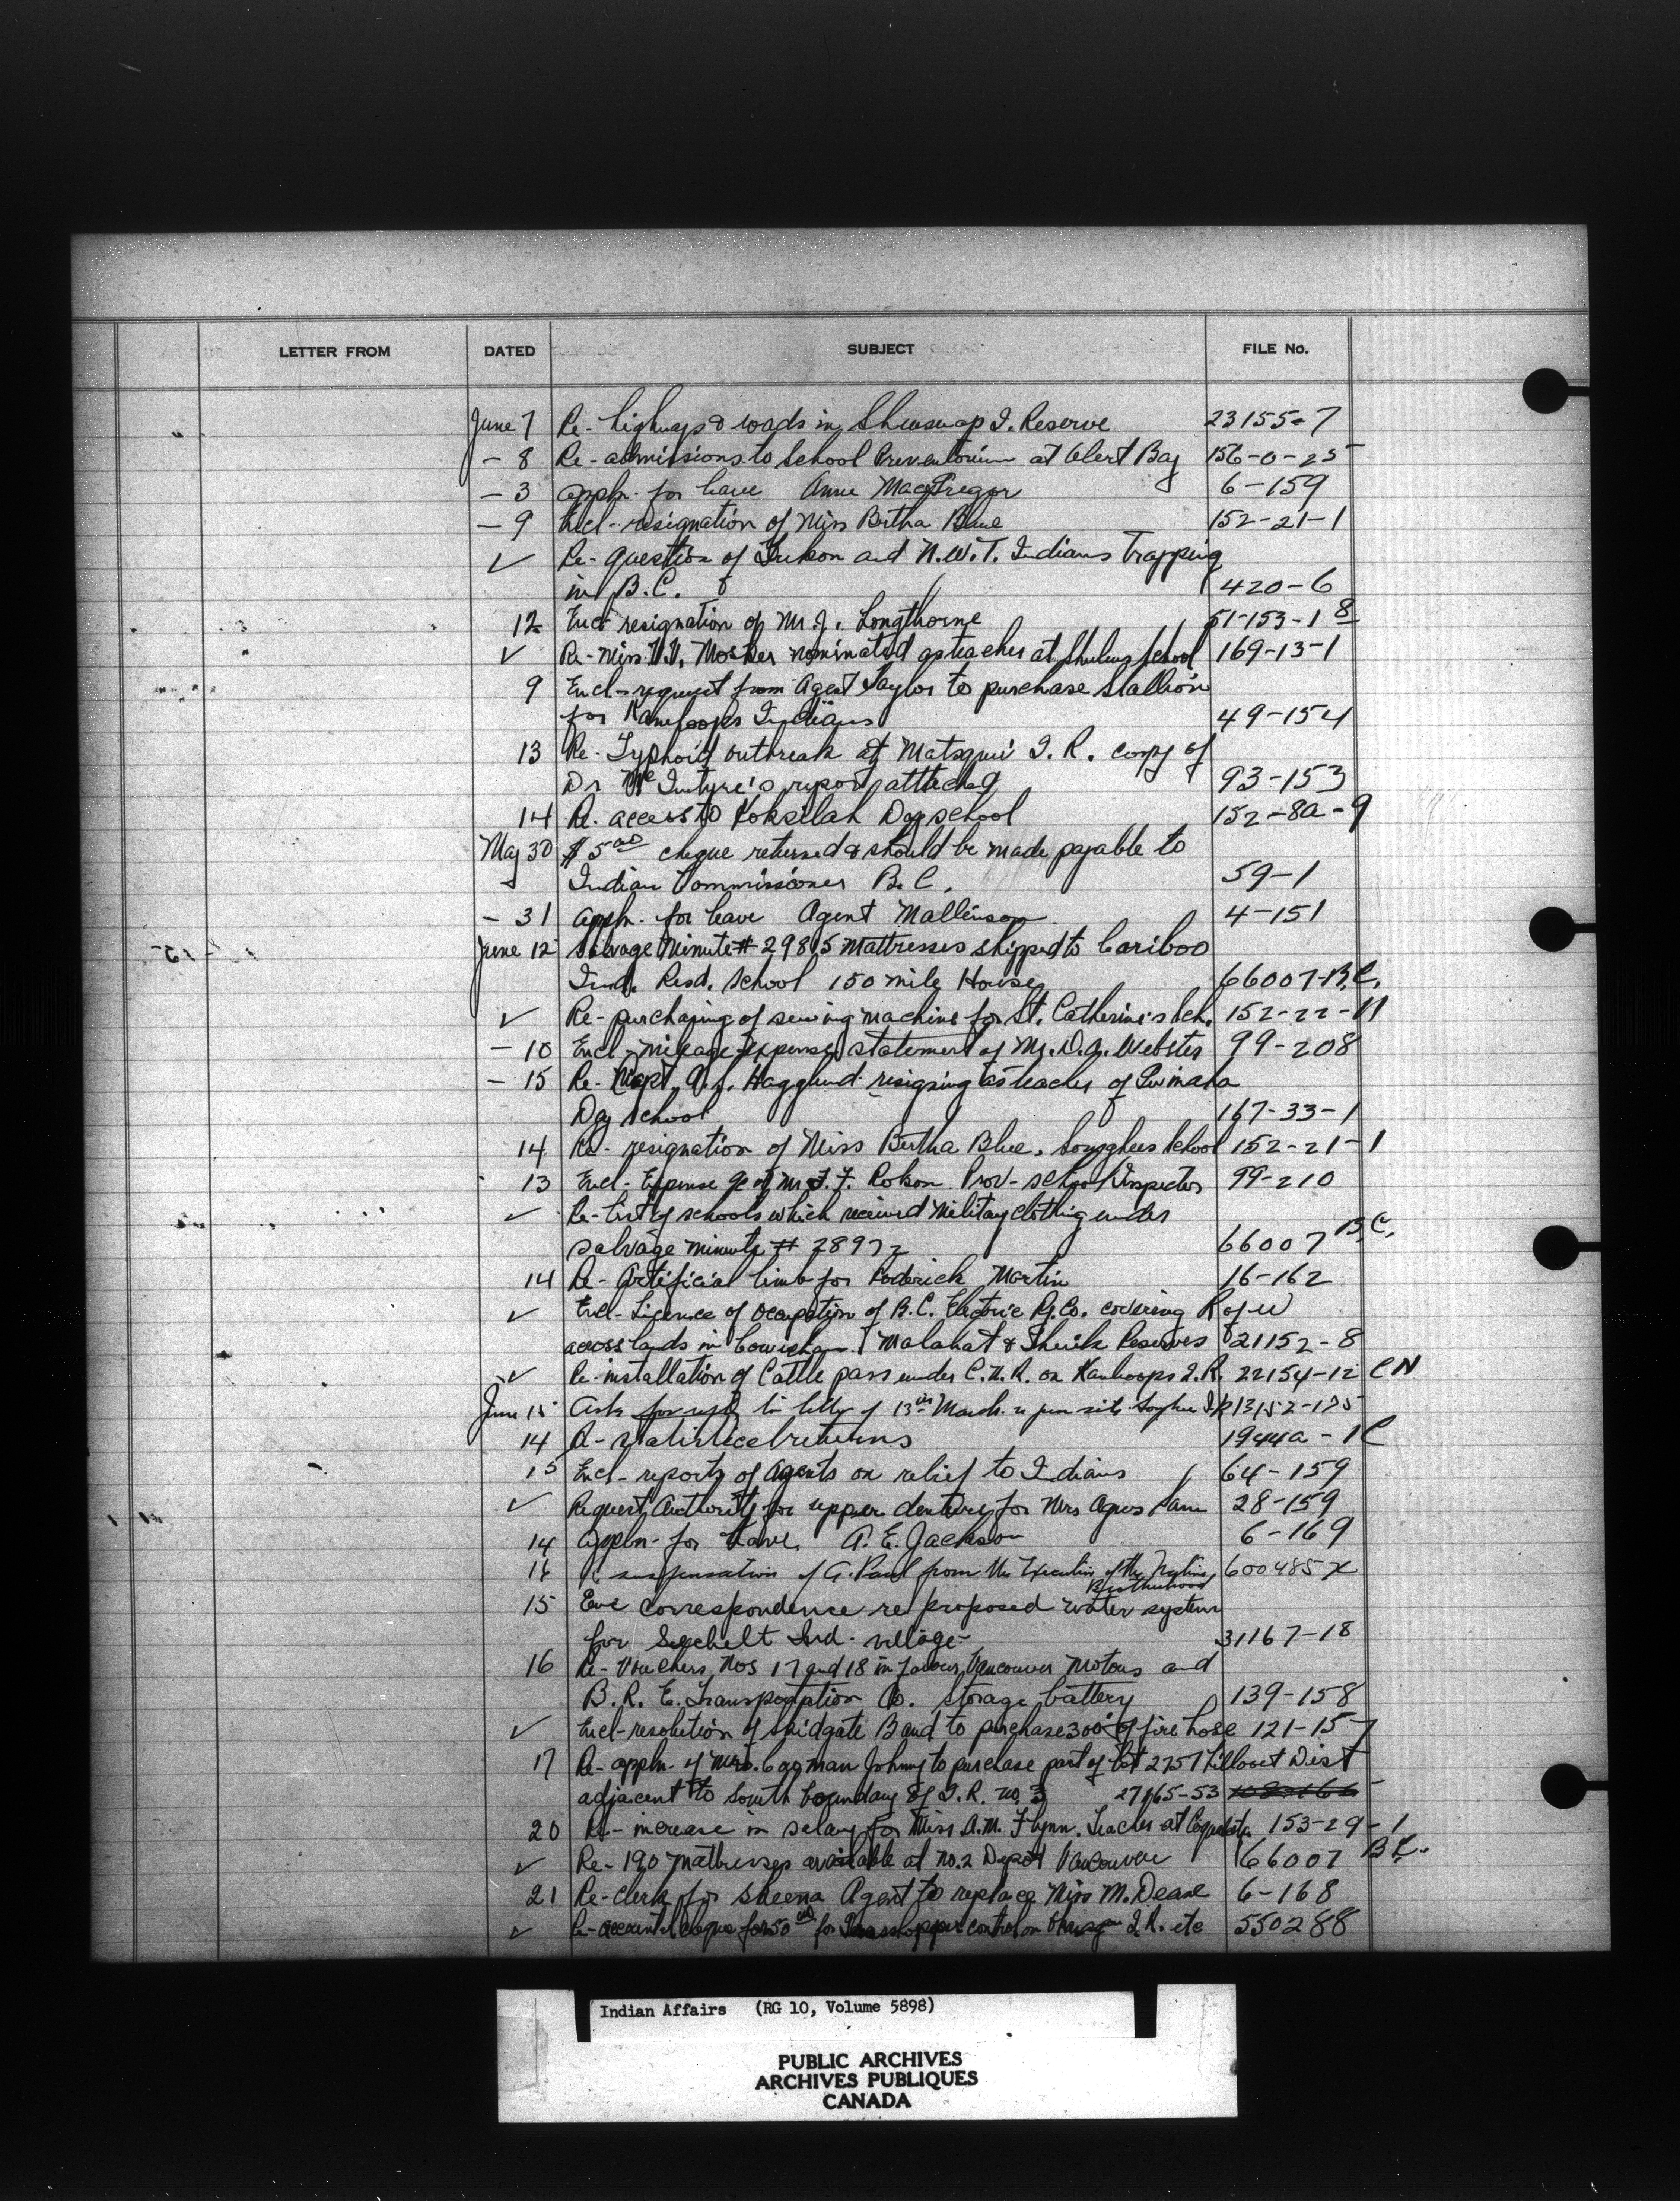 LETTER FROM DATED SUBJECT FILE No.
June 7 Re- highways & roads in Shuswap I. Reserve 23155-7
- 8 Re- admissions to School Preventorium at Alert Bay 156-0-25
- 3 appln. for leave Anne MacGregor 6-159
- 9 Encl- resignation of Miss Bertha Blue 152-21-1
✓ Re- question of Yukon and N.W.T. Indians Trapping
in B.C. 420-6
12 Encl resignation of Mr. J. Longthorne 51-153-18
✓ Re- Miss V.V. Mosher nominated as teacher at Shulus School 169-13-1
9 Encl- request from Agent Taylor to purchase Stallion
for Kamloops Indians 49-154
13 Re- Typhoid outbreak at Matsqui I. R. copy of
Dr McIntyre's report attached 93-153
14 Re. access to Koksilah Day school 152-8a-9
May 30 $5.00 cheque returned & should be made payable to
Indian Commissioner B.C. 59-1
- 31 appln. for leave Agent Mallinson 4-151
June 12 Salvage Minute # 29815 mattresses shipped to Cariboo
Ind. Resd. School 150 mile House 66007-B.C.
✓ Re- purchasing of sewing machine for St. Catherine's Sch. 152-22-11
- 10 Encl- mileage expense statement of Mr. D.A. Webster 99-208
- 15 Re- Capt. A.J. Hagglund resigning as teacher of
Day School 167-33-1
14 Re- resignation of Miss Bertha Blue, Songhees School 152-21-1
13 Encl- Expense of Mr F. F. Prov- school Inspector 99-210
✓ Re- List of schools which received Military clothing under
Salvage minute # 28972 66007 B.C.
14 Re- Artificial limb for Roderick Martin 16-162
✓ Encl- Licence of Occupation of B.C. Electric Ry. Co. covering R of W
across lands in Cowichan, Malahat & Reserves 21152-8
✓ Re- installation of Cattle pass under C.N.R. on Kamloops I.R. 22154-12 CN
June 15 Ask for reply to letter of 13th March re 13152-125
14 Re- statistical returns 1944a-1C
15 Encl- reports of Agents on relief to Indians 64-159
✓ Request Authority for upper denture for Mrs Agnes Sam 28-159
14 appln- for leave, A. E. Jackson 6-169
16 Re suspension of G. Paul from the Executive of the Native Brotherhood 600485X
15 Enc correspondence re proposed water system
for Sechelt Ind. village- 31167-18
16 Re- Vouchers, Nos 17 and 18 in favour, Vancouver Motors and
B.R.E. Transportation Co. storage battery 139-158
✓ Encl- resolution of Skidgate Band to purchase 300' of fire hose 121-157
17 Re- appln- of Mrs. Johnny to purchase part of Lot 2757 Lillooet Dist
adjacent to South boundary of I.R. no. 3 27165-53
20 Re- increase in salary for Miss A.M. Flynn. Teacher at 153-29-1
✓ Re- 190 mattresses available at No. 2 Depot Vancouver 66007 BC.
21 Re- clerk for Skeena Agent to replace Miss M. Deane 6-168
✓ Re- account cheque for 50.00 for Grasshopper control on I.R. etc 550288
Indian Affairs (RG 10, Volume 5898)
PUBLIC ARCHIVES
ARCHIVES PUBLIQUES
CANADA